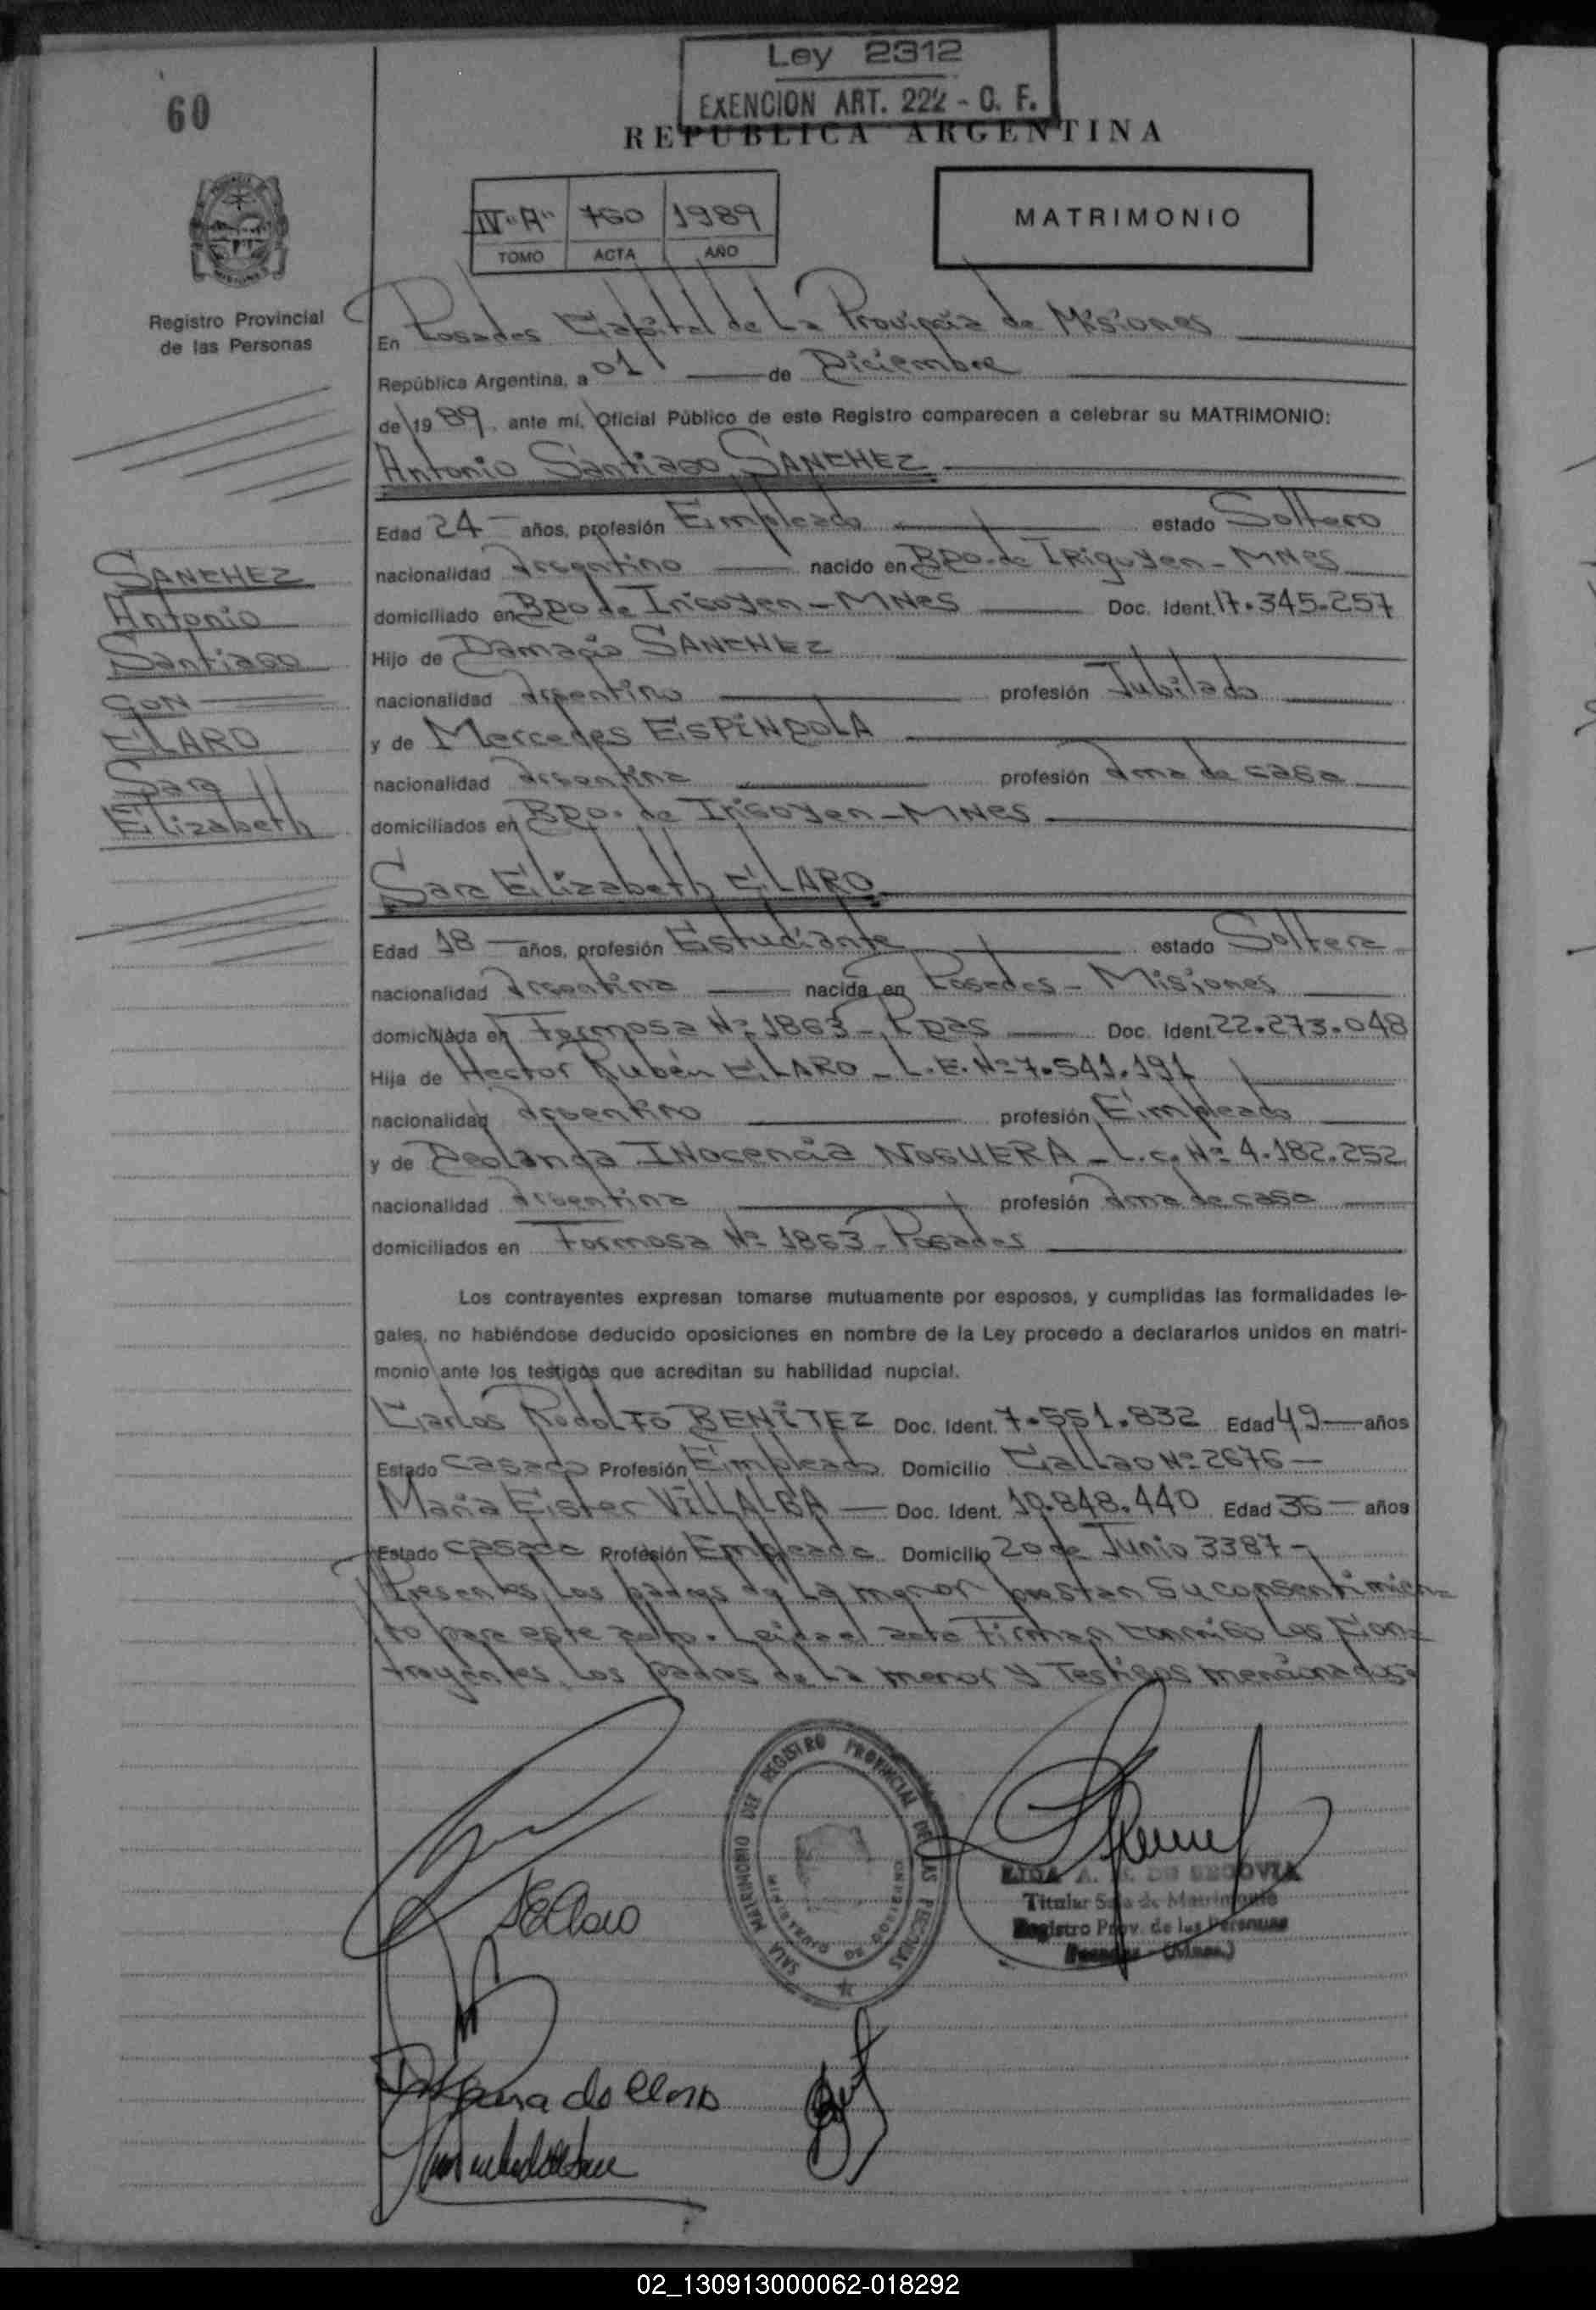 Ley 2312
EXENCION ART. 222 - C. F.
60
REPUBLICA ARGENTINA
IV "A" 760 1989
TOMO ACTA AÑO
MATRIMONIO
Registro Provincial
de las Personas
En Posadas Capital de La Provincia de Misiones
República Argentina, a 01 de Diciembre
de 1989, ante mí, Oficial Público de este Registro comparecen a celebrar su MATRIMONIO:
Antonio Santiago SANCHEZ
Edad 24 años, profesión Empleado estado Soltero
nacionalidad Argentino nacido en Bdo. de IRigoyen - MNes
domiciliado en Bdo de Irigoyen - MNes Doc. Ident. 17.345.257
Hijo de Damacio SANCHEZ
nacionalidad Argentino profesión Jubilado
y de Mercedes ESPINDOLA
nacionalidad Argentina profesión Ama de casa
domiciliados en Bdo. de Irigoyen - MNes
SANCHEZ
Antonio
Santiago
CON
CLARO
Sara
Elizabeth
Sara Elizabeth CLARO
Edad 18 años, profesión Estudiante estado Soltera
nacionalidad Argentina nacida en Posadas - Misiones
domiciliada en Formosa Nº 1863 - Pdas Doc. Ident. 22.273.048
Hija de Hector Rubén CLARO - L.E. Nº 7.541.191
nacionalidad Argentino profesión Empleado
y de Deolinda INocencia NOGUERA - L.c. Nº 4.182.252
nacionalidad Argentina profesión Ama de casa
domiciliados en Formosa Nº 1863 - Posadas
Los contrayentes expresan tomarse mutuamente por esposos, y cumplidas las formalidades le-
gales, no habiéndose deducido oposiciones en nombre de la Ley procedo a declararlos unidos en matri-
monio ante los testigos que acreditan su habilidad nupcial.
Carlos RodolFo BENITEZ Doc. Ident. 7.551.832 Edad 49 años
Estado casado Profesión Empleado Domicilio Callao Nº 2676
Maria Ester VILLALBA Doc. Ident. 10.848.440 Edad 36 años
Estado casada Profesión Empleada Domicilio 20 de Junio 3387
Presentes los padres de La menor prestan Su consentimien=
to para este acto. Leida el acta Firman conmigo Los Con=
trayentes, los padres de La menor y Testigos mencionados.
SALA MATRIMONIO DEL REGISTRO PROVINCIAL DE LAS PERSONAS
SEClaro
A. DE SEGOVIA
Titular Sala de Matrimonio
Registro Prov. de las Personas
Posadas - (Mnes.)
de Claro
02_130913000062-018292